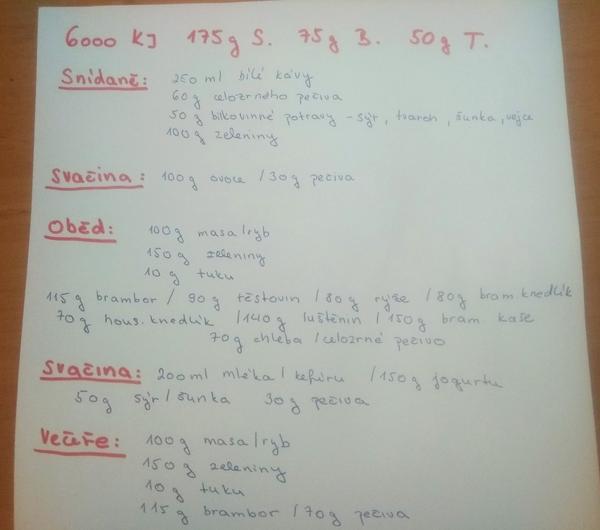 6000 KJ 175g S. 75g B. 50g T.
Snídaně: 250 ml bílé kávy
60g celozrného pečiva
50g bílkovinné potravy - sýr, tvaroh, šunka, vejce
100g zeleniny
Svačina: 100g ovoce / 30g pečiva
Oběd: 100g masa/ryb
150g zeleniny
10g tuku
115g brambor / 90g těstovin / 80g rýže / 80g bram. knedlík
70g hous. knedlík / 140g luštěnin / 150g bram. kaše
70g chleba / celozrné pečivo
Svačina: 200ml mléka / kefíru / 150g jogurtu
50g sýr / šunka 30g pečiva
Večeře: 100g masa/ryb
150g zeleniny
10g tuku
115g brambor / 70g pečiva